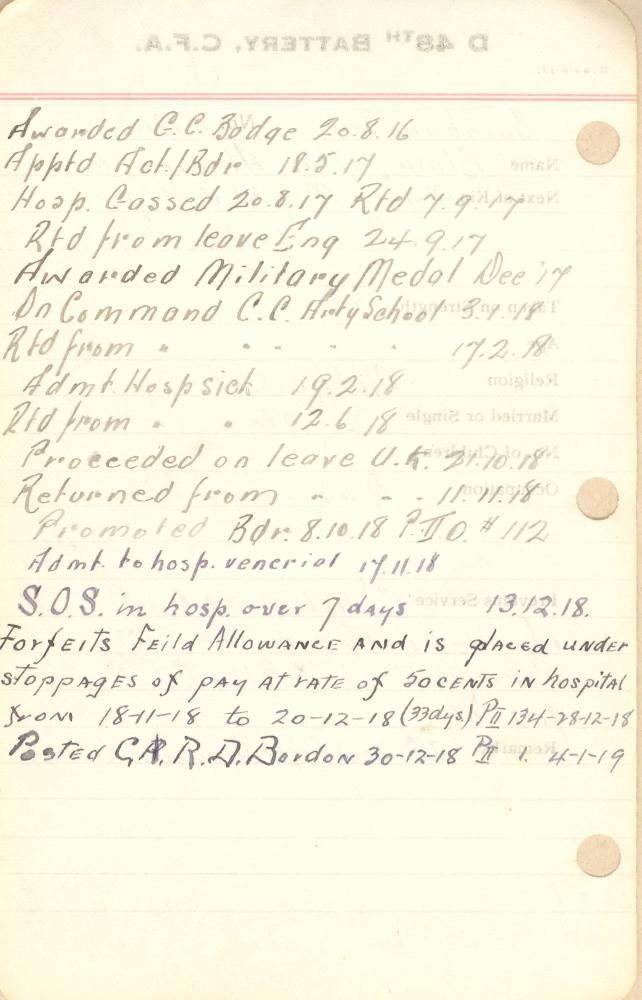 D 48TH BATTERY, C.F.A.
Awarded G.C. Badge 20.8.16
Apptd Act/Bdr 18.5.17
Name
Hosp. Gassed 20.8.17 Rtd 7.9.17
Next of Kin
Rtd from leave Eng 24.9.17
Awarded Military Medal Dec '17
On Command C.C. Arty School 3.1.18
Taken on Strength
Rtd from " " " " " 17.2.18
Admt. Hosp sick 19.2.18
Religion
Rtd from " " 12.6.18
Married or Single
Proceeded on leave U.K. 21.10.18
No. of Children
Returned from " " " 11.11.18
Occupation
Promoted Bdr. 8.10.18 P.II O. # 112
Admt. to hosp. venerial 17.11.18
S.O.S. in hosp. over 7 days 13.12.18.
Previous Service
Forfeits Feild Allowance and is placed under
stoppages of pay at rate of 50cents in hospital
from 18-11-18 to 20-12-18 (33days) PII 134-28-12-18
Posted C.A. R.D. Bordon 30-12-18 PII 1. 4-1-19
Remarks